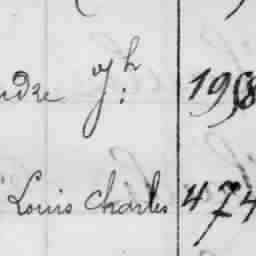 Jh: 198
Louis Charles 474